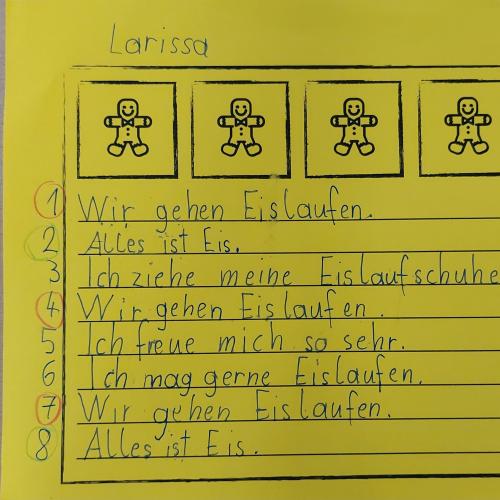 Larissa
1 Wir gehen Eislaufen.
2 Alles ist Eis.
3 Ich ziehe meine Eislaufschuhe
4 Wir gehen Eislaufen.
5 Ich freue mich so sehr.
6 Ich mag gerne Eislaufen.
7 Wir gehen Eislaufen.
8 Alles ist Eis.